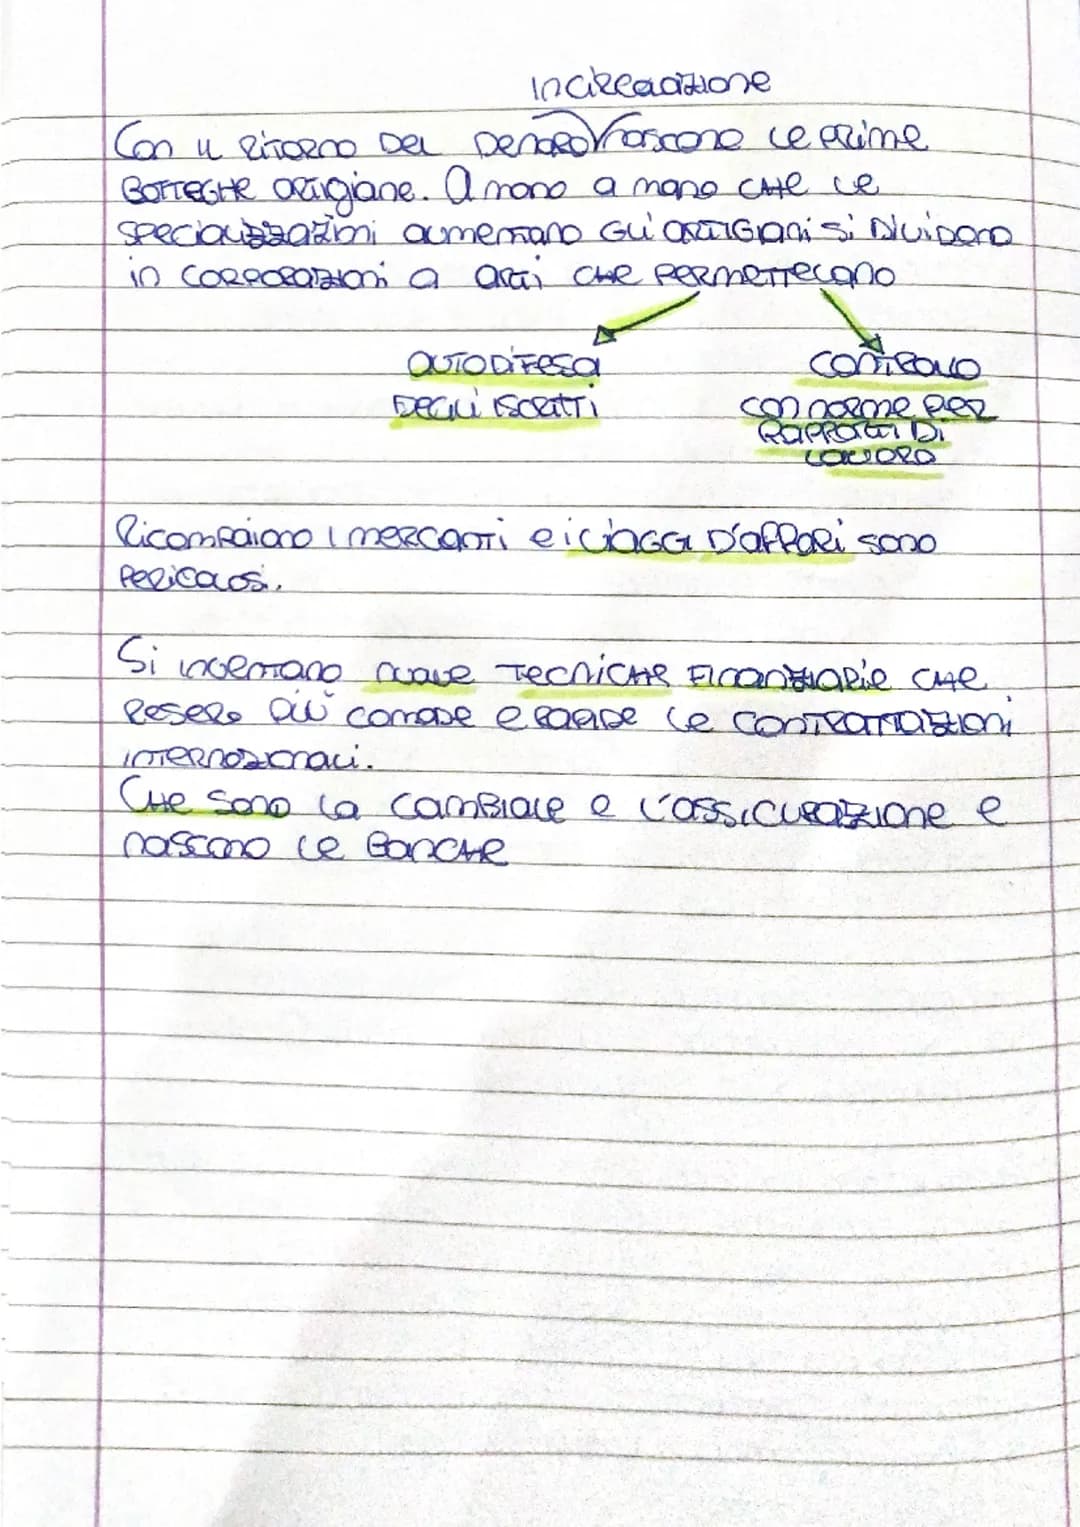 in circolazione
Con il ritorno del denaro nascono le prime
botteghe artigiane. A mano a mano che le
specializzazioni aumentano gli artigiani si dividono
in corporazioni o arti che permettevano
autodifesa
degli iscritti
controllo
con norme per
rapporti di
lavoro
Ricompaiono i mercanti e i viaggi d'affari sono
pericolosi.
Si inventano nuove tecniche finanziarie che
resero più comode e rapide le contrattazioni
internazionali.
Che sono la cambiale e l'assicurazione e
nascono le banche